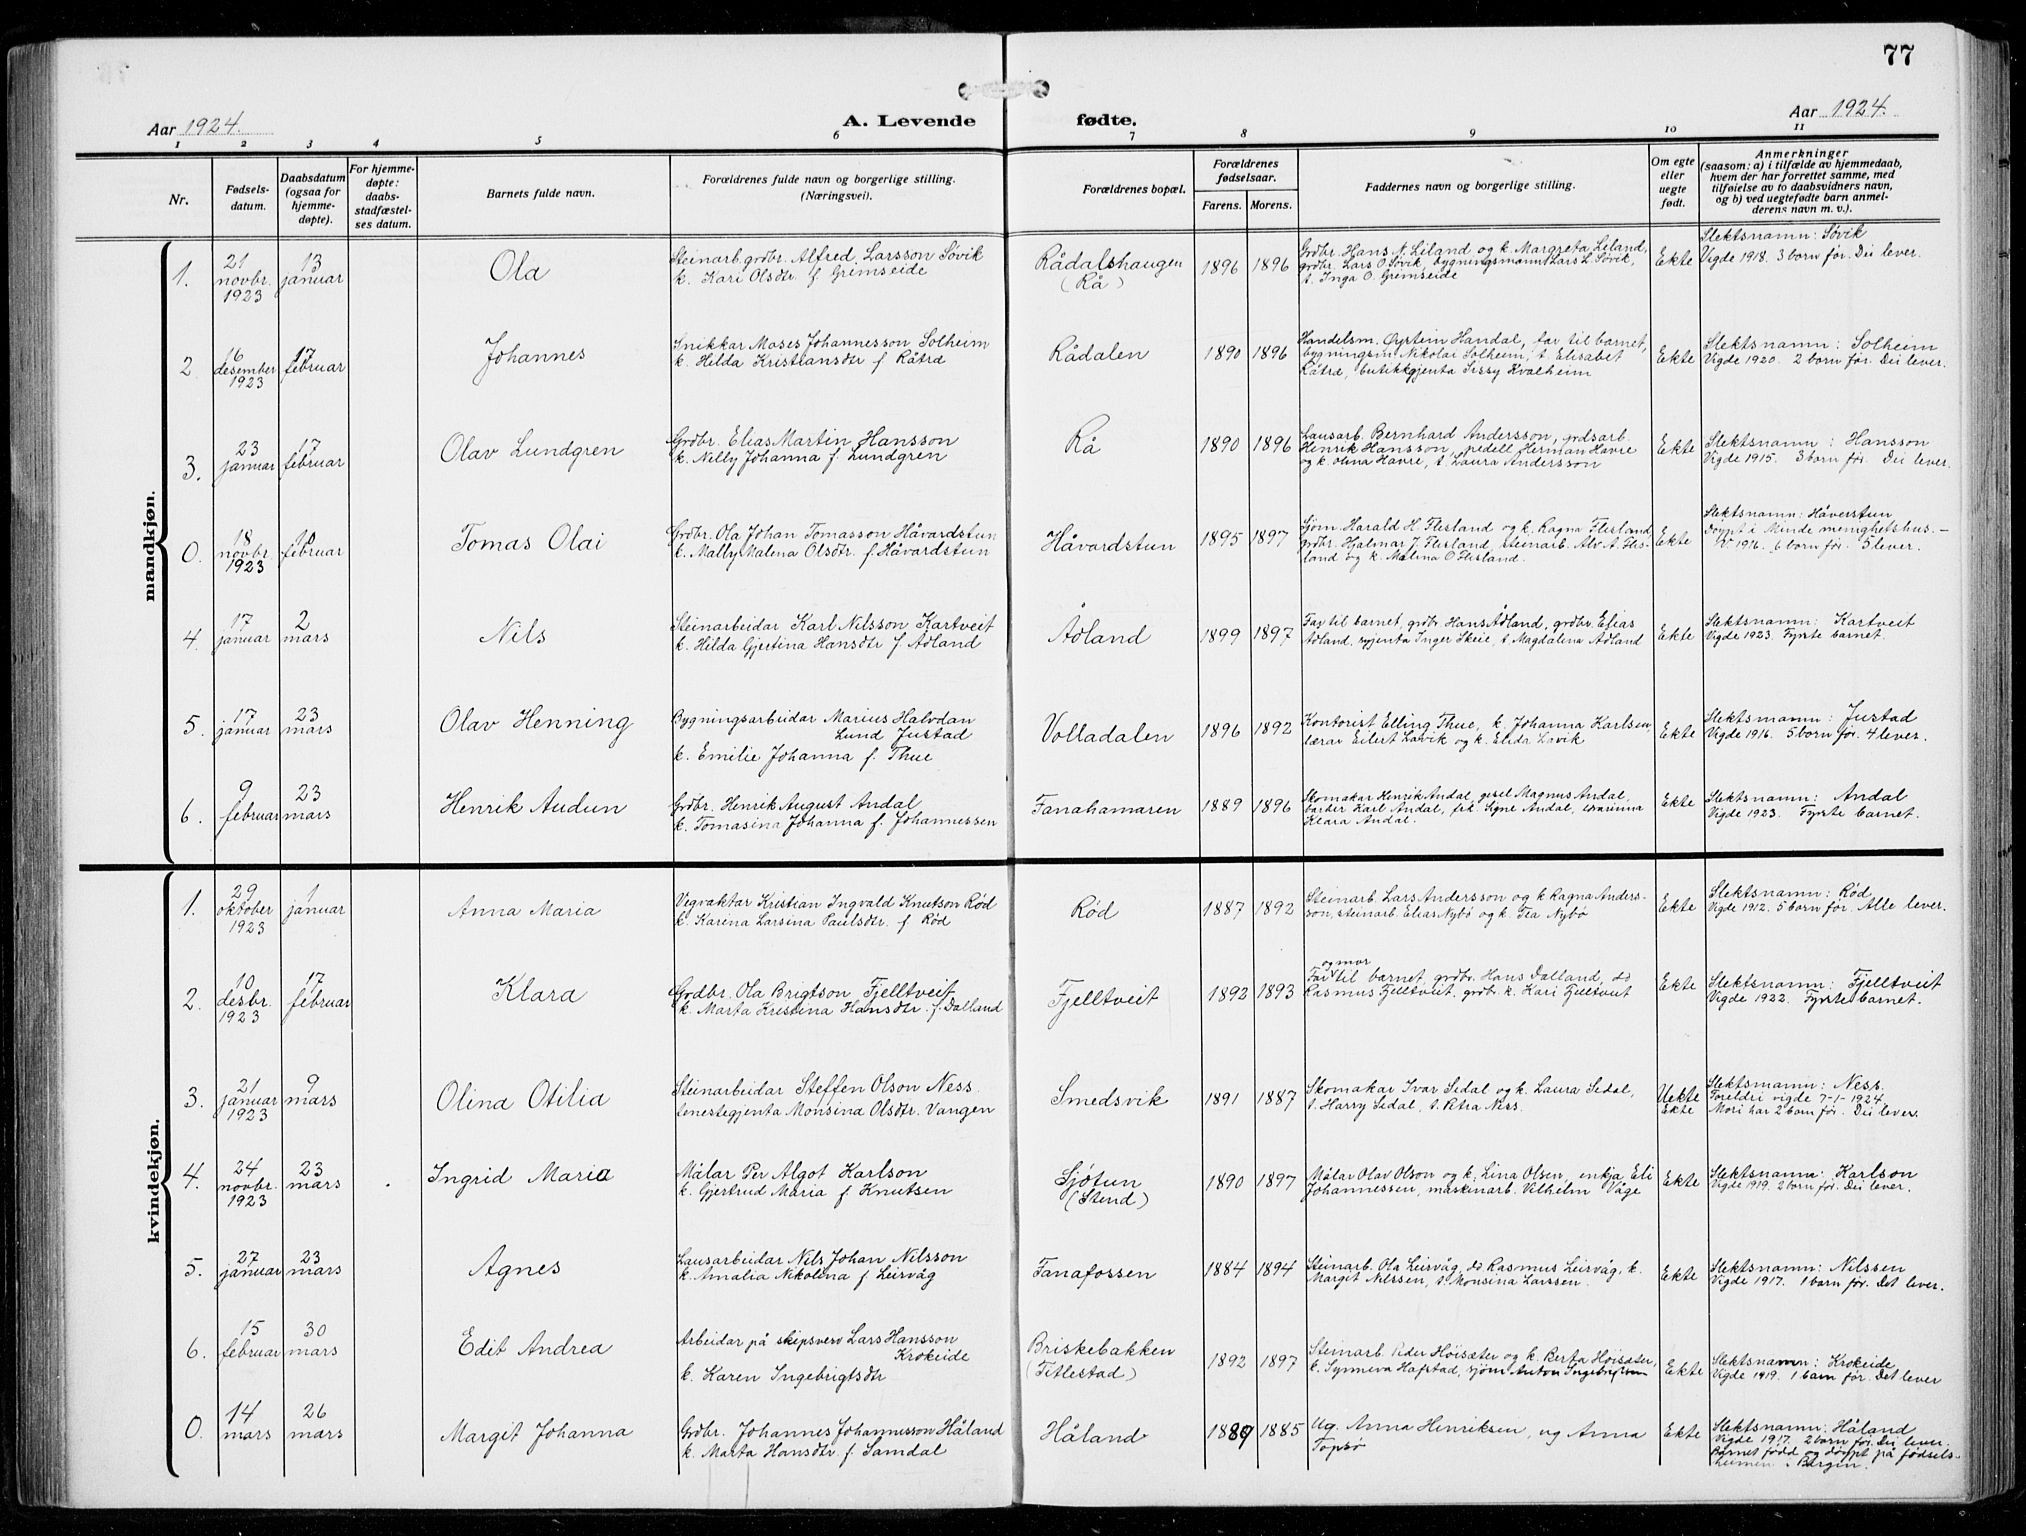 77
Aar 1924. A. Levende fødte. Aar 1924.
1 2 3 4 5 6 7 8 9 10 11
Nr.
Fødsels-
datum.
Daabsdatum
(ogsaa for
hjemme-
døpte).
For hjemme-
døpte:
daabs-
stadfæstel-
ses datum.
Barnets fulde navn.
Forældrenes fulde navn og borgerlige stilling.
(Næringsvei).
Forældrenes bopæl.
Forældrenes
fødselsaar.
Farens. Morens.
Faddernes navn og borgerlige stilling.
Om egte
eller
uegte
født.
Anmerkninger
(saasom: a) i tilfælde av hjemmedaab,
hvem der har forrettet samme, med
tilføielse av to daabsvidners navn,
og b) ved uegtefødte barn anmel-
derens navn m. v.).
mandkjøn.
1.
21
novbr.
1923
13
januar
Ola
Steinarb. grdbr. Alfred Larsson Søvik
k. Kari Olsdtr. f. Grimseide
Rådalshaugen
(Rå)
1896 1896
Grdbr. Hans N. Liland og k. Margreta Liland,
grdbr. Lars O. Søvik, bygningsmann Lars L. Søvik,
t. Inga O. Grimseide
Ekte
Slektsnamn: Søvik
Vigde 1918. 3 born før. Dei lever.
2.
16
desember
1923
17
februar
Johannes
Snikkar Moses Johannesson Solheim
k. Hilda Kristiansdtr f. Råtræ
Rådalen
1890 1896
Handelsm. Øystein Handal, far til barnet,
bygningsm Nikolai Solheim, t. Elisabet
Råtræ, butikkgjenta Sissy Kvalheim
Ekte
Slektsnamn: Solheim
Vigde 1920. 2 born før. Dei lever.
3.
23
januar
17
februar
Olav Lundgren
Grdbr. Elias Martin Hansson
k. Nelly Johanna f. Lundgren
Rå
1890 1896
Lausarb. Bernhard Andersson, grdsarb.
Henrik Hansson, pedell Herman Havre
og k. Olina Havre, t. Laura Andersson
Ekte
Slektsnamn: Hansson
Vigde 1915. 3 born før. Dei lever.
0.
18
novbr.
1923
februar
Tomas Olai
Grdbr. Ola Johan Tomasson Håvardstun
k. Malby Malena Olsdtr. f. Håvardstun
Håvardstun
1895 1897
Sjøm. Harald H. Flesland og k. Ragna Flesland
grdbr. Hjalmar J. Flesland, steinarb. Alv A. Fles-
land og k. Malina O Flesland.
Ekte
Slektsnamn: Håverstun
Døypt i Minde menighetshus. —
V. 1916. 6 born før. 5 lever.
4.
17
januar
2
mars
Nils
Steinarbeidar Karl Nilsson Kartveit
k. Hilda Gjertina Hansdtr f. Ådland
Ådland
1899 1897
Far til barnet, grdbr. Hans Ådland, grdbr. Elias
Ådland, gjenta Inger Skeie, t. Magdalena Ådland
Ekte
Slektsnamn: Kartveit
Vigde 1923. Fyrste barnet.
5.
17
januar
23
mars
Olav Henning
Bygningsarbeidar Marius Halvdan
Lund Justad
k. Emilie Johanna f. Thue
Volladalen
1896 1892
Kontorist Elling Thue, k. Johanna Karlsen,
lærar Eilert Lavik og k. Elida Lavik
Ekte
Slektsnamn: Justad
Vigde 1916. 5 born før. 4 lever.
6.
9
februar
23
mars
Henrik Audun
Grdbr. Henrik August Andal
k. Tomasina Johanna f. Johannessen
Fanahamaren
1889 1896
Skomakar Henrik Andal, gesel Magnus Andal,
barber Karl Andal, frk. Signe Andal,
Klara Andal.
Ekte
Slektsnamn: Andal
Vigde 1923. Fyrste barnet.
kvindekjøn.
1.
29
oktober
1923
1
januar
Anna Maria
Vegvaktar Kristian Ingvald Knutson Rød
k. Karina Larsina Paulsdtr. f Rød
Rød
1887 1892
Steinarb. Lars Andersson og k Ragna Anders-
son, steinarb. Elias Nybø og k. Tea Nybø
Ekte
Slektsnamn: Rød
Vigde 1912. 5 born før. Alle lever.
2.
10
desbr.
1923
17
februar
Klara
Grdbr. Ola Brigtson Fjelltveit
k. Marta Kristina Hansdtr. f. Dalland
Fjelltveit
1892 1893
og mor
Far til barnet grdbr. Hans Dalland, do
Rasmus Fjelltveit, grdbr. k. Kari Fjelltveit
Ekte
Slektsnamn: Fjelltveit
Vigde 1922. Fyrste barnet.
3.
21
januar
1923
9
mars
Olina Otilia
Steinarbeidar Steffen Olson Ness.
tenestegjenta Monsina Olsdtr. Vangen
Smedsvik
1891 1887
Skomakar Ivar Sedal og k. Laura Sedal,
t. Harry Sedal, t. Petra Ness.
Uekte
Ekte
Slektsnamn: Ness.
Foreldri vigde 7-1-1924.
Mori har 2 born før. Dei lever.
4.
24
novbr.
1923
23
mars
Ingrid Maria
Målar Per Algot Karlson
k. Gjertrud Maria f Knutsen
Sjøtun
(Stend)
1890 1897
Målar Olav Olson og k. Lina Olsen, enkja Eli
Johannessen, maskinarb. Vilhelm Våge
Ekte
Slektsnamn: Karlson
Vigde 1919. 2 born før. Dei lever.
5.
27
januar
23
mars
Agnes
Lausarbeidar Nils Johan Nilsson
k. Amalia Nikolina f Leirvåg
Fanafossen
1884 1894
Steinarb. Ola Leirvåg, do Rasmus Leirvåg, k.
Margit Nilssen, t. Monsina Larssen.
Ekte
Slektsnamn: Nilssen
Vigde 1917. 1 born før. Det lever.
6.
15
februar
30
mars
Edit Andrea
Arbeidar på skipsverv Lars Hansson
Krokeide
k. Karen Ingebrigtsdtr
Briskebakken
(Titlestad)
1892 1897
Steinarb. Peder Høisæter og k. Berta Høisæter,
k. Synneva Hafstad, sjøm Anton Ingebrigtsen
Ekte
Slektsnamn: Krokeide
Vigde 1919. 1 barn før. Det lever
0.
14
mars
26
mars
Margit Johanna
Grdbr. Johannes Johannesson Håland
k. Marta Hansdtr f. Samdal
Håland
1889 1885
Ug. Anna Henriksen, ug Anna
Topsø
Ekte
Slektsnamn: Håland
Vigde 1917. 2 born før. Dei lever.
Barnet fødd og døypt på fødsels-
heimen i Bergen.